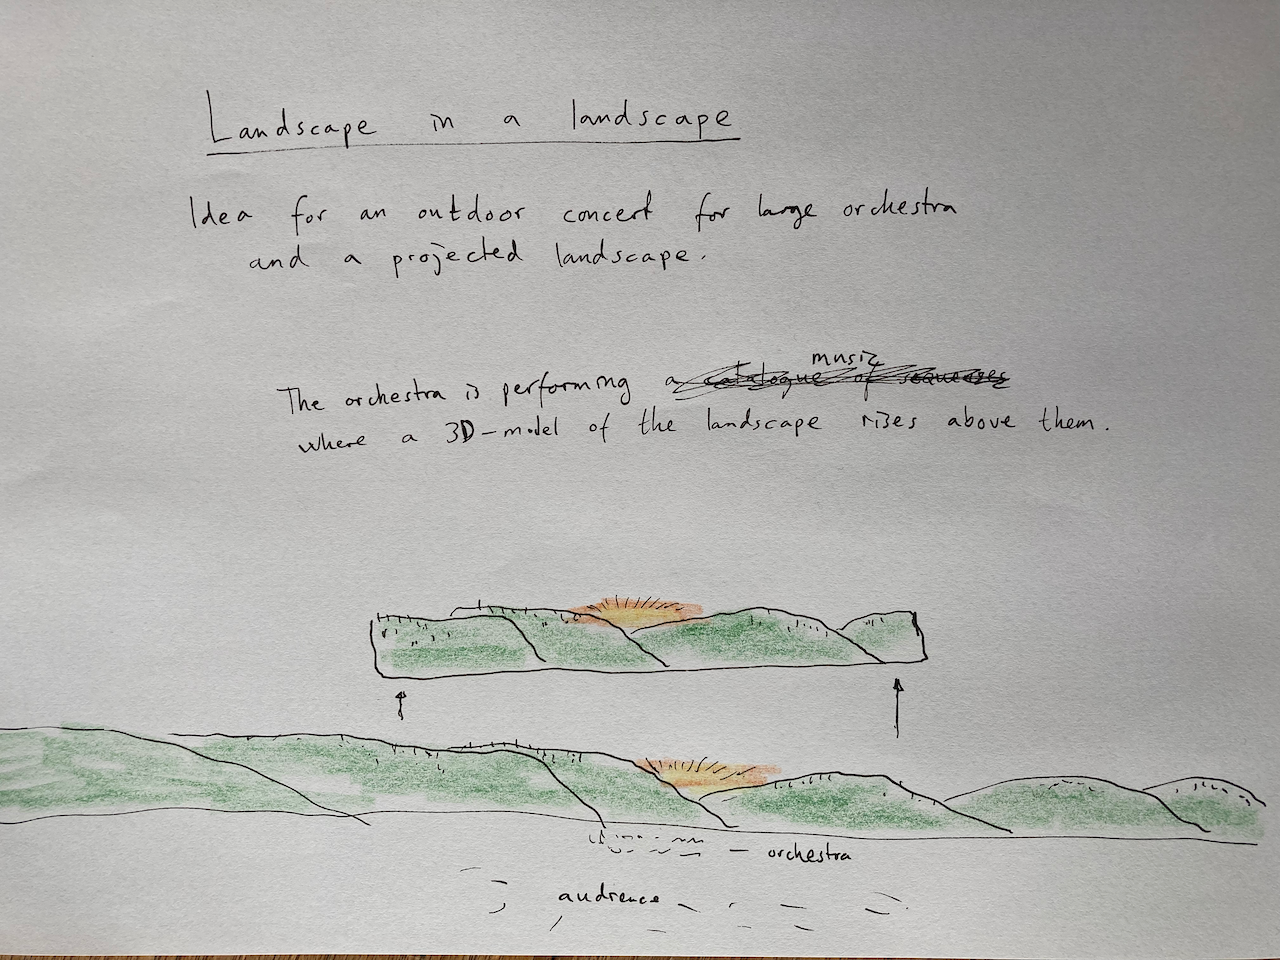 Landscape in a landscape
Idea for an outdoor concert for large orchestra
and a projected landscape.
The orchestra is performing a catalogue of sequences music
where a 3D-model of the landscape rises above them.
orchestra
audience